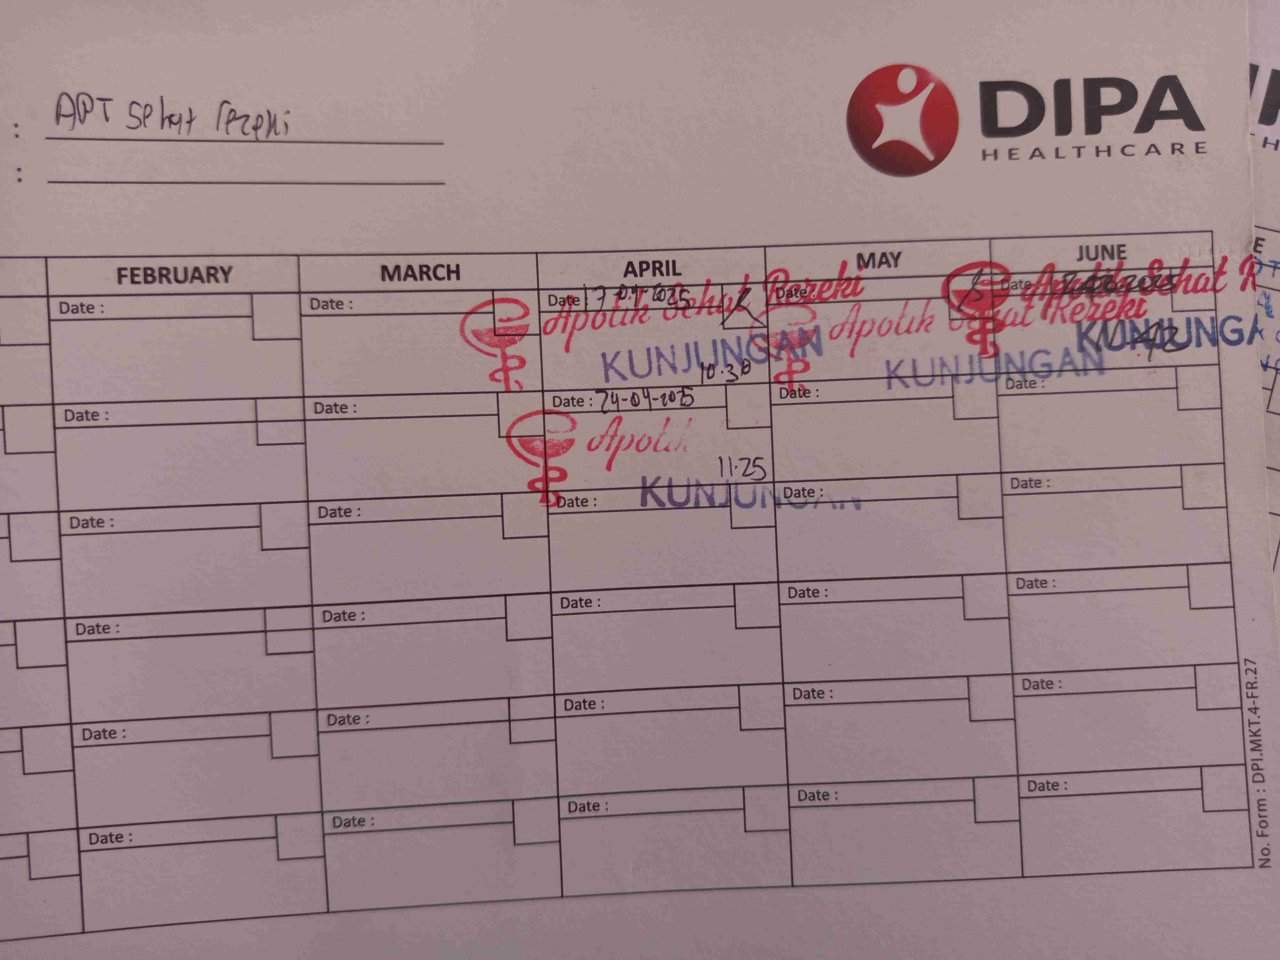 : APT Sehat Rezeki
:
DIPA
HEALTHCARE
FEBRUARY MARCH APRIL MAY JUNE
Date : Date : Date : 17-04-2025 Date : Date :
Apotik Sehat Rezeki Apotik Sehat Rezeki Apotik Sehat R
KUNJUNGAN KUNJUNGAN KUNJUNGA
10.30
Date : Date : Date : 24-04-2025 Date : Date :
Apotik
11.25
KUNJUNGAN
Date : Date : Date : Date : Date :
Date : Date : Date : Date : Date :
Date : Date : Date : Date : Date :
Date : Date : Date : Date : Date :
No. Form : DPI.MKT.4-FR.27